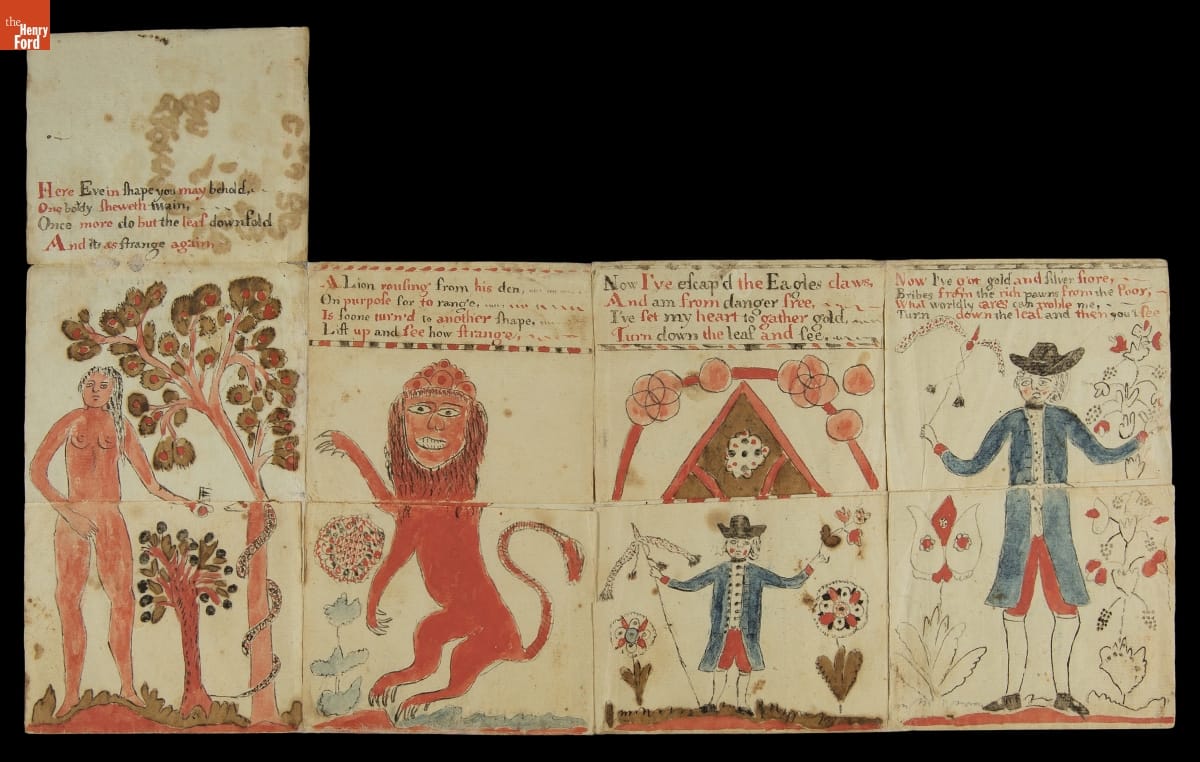 the
Henry
Ford
Here Eve in shape you may behold,
One boddy sheweth twain,
Once more do but the leaf downfold
And its as strange again
A Lion rousing from his den,
On purpose for to range,
Is soone turn'd to another shape,
Lift up and see how strange,
Now I've escap'd the Eagles claws,
And am from danger free,
I've set my heart to gather gold,
Turn down the leaf and see,
Now I've got gold, and silver store,
Bribes from the rich pawns from the Poor,
What worldly cares can troble me,
Turn down the leaf and then you'l see